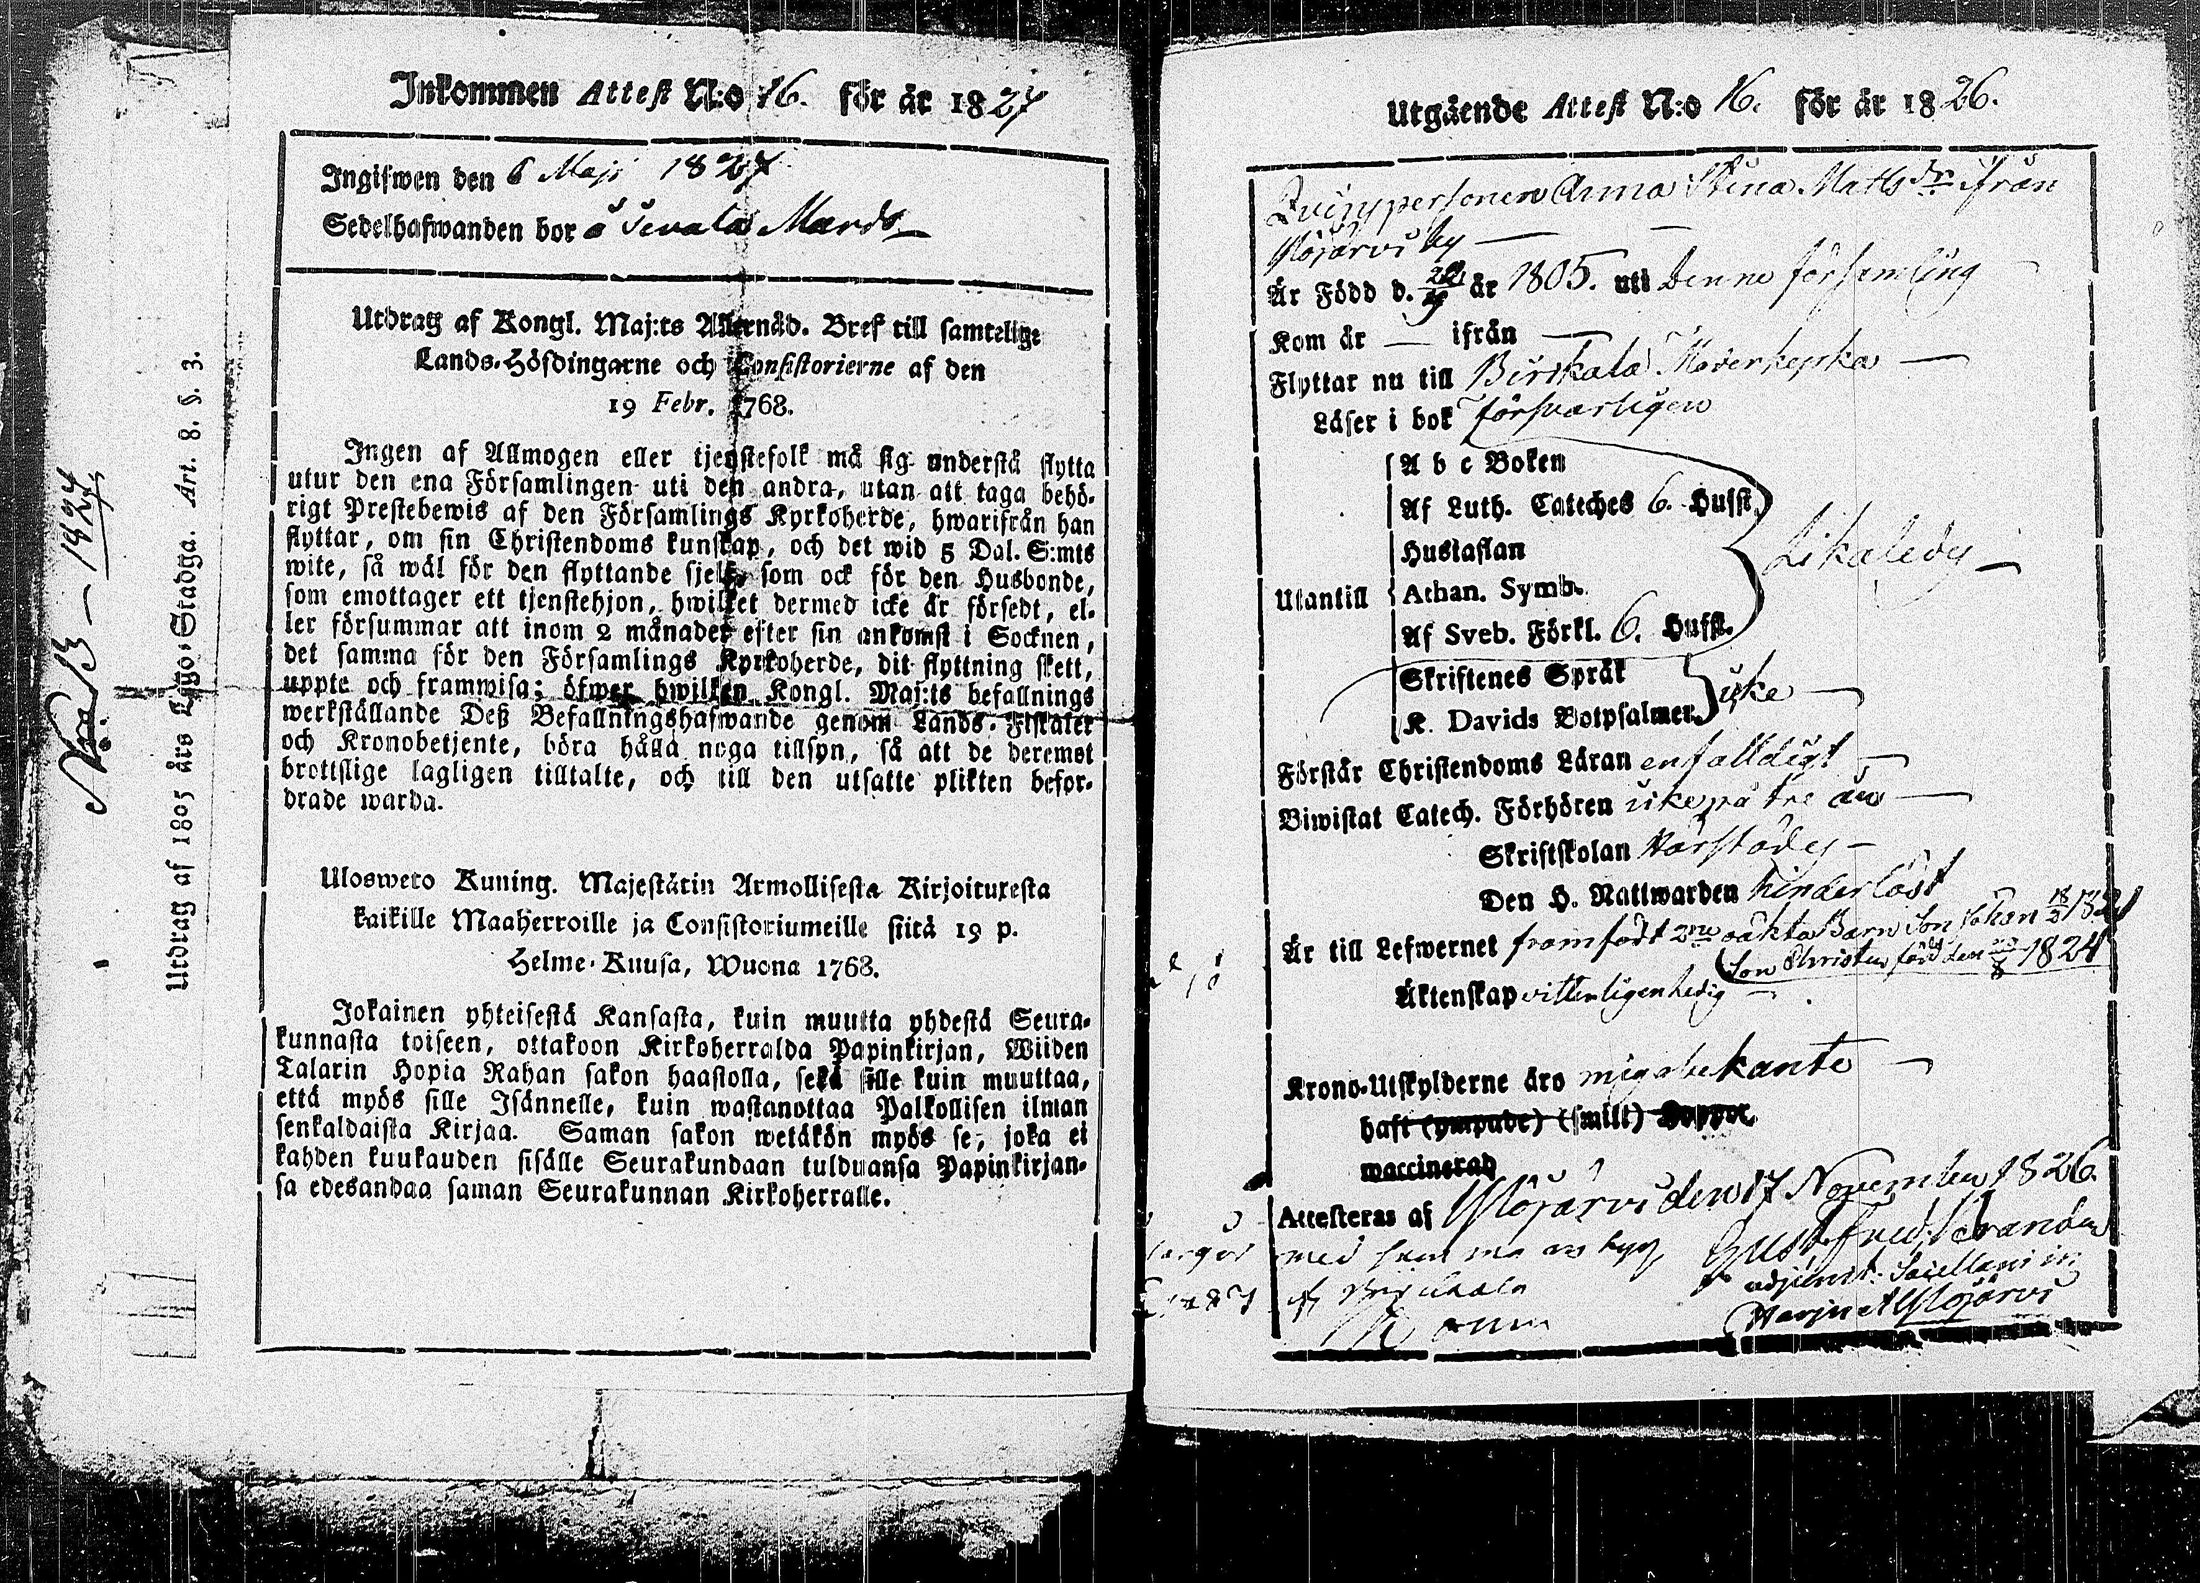 Inkommen Attest N:o 16. för år 1827
Ingifwen den 6 Maji 1827
Sedelhafwanden bor å Sevala Mards
Utdrag af Kongl. Maj:ts Allernåd. Bref till samtelige
Lands-Höfdingarne och Consistorierne af den
19 Febr. 1768.
Ingen af Allmogen eller tjenstefolk må sig understå flytta
utur den ena Församlingen uti den andra, utan att taga behö-
rigt Prestebewis af den Församlings Kyrkoherde, hwarifrån han
flyttar, om sin Christendoms kunskap, och det wid 5 Dal. S:mts
wite, så wäl för den flyttande sjelf, som ock för den Husbonde,
som emottager ett tjenstehjon, hwilket dermed icke är försedt, el-
ler försummar att inom 2 månader efter sin ankomst i Socknen,
det samma för den Församlings Kyrkoherde, dit flyttning skett,
uppte och framwisa; öfwer hwilken Kongl. Maj:ts befallnings
werkställande Deß Befallningshafwande genom Lands-Fiskaler
och Kronobetjente, böra hålla noga tillsyn, så att de deremot
brottslige lagligen tilltalte, och till den utsatte plikten befor-
drade warda.
Ulosweto Kuning. Majestätin Armollisesta Kirjoituxesta
kaikille Maaherroille ja Consistoriumeille siitä 19 p.
Helme-Kuusa, Wuona 1768.
Jokainen yhteisestä Kansasta, kuin muutta yhdestä Seura-
kunnasta toiseen, ottakoon Kirkoherralda Papinkirjan, Wiiden
Talarin Hopia Rahan sakon haastolla, sekä sille kuin muuttaa,
että myös sille Isännelle, kuin wastanottaa Palkollisen ilman
senkaldaista Kirjaa. Saman sakon wetäkön myös se, joka ei
kahden kuukauden sisälle Seurakundaan tulduansa Papinkirjan-
sa edesandaa saman Seurakunnan Kirkoherralle.
Utdrag af 1805 års Lego-Stadga. Art. 8. §. 3.
No 13 – 1827
Utgående Attest N:o 16. för år 1826.
Qvinspersonen Anna Stina Matts dr ifrån
Ylöjärvi by
Är Född d. år 1805. uti Denne församling
Kom år — ifrån —
Flyttar nu till Birkala Moderkyrka
Läser i bok försvarligen
A b c Boken
Af Luth. Cateches 6. Hufst.
Hustaflan
Utantill Athan. Symb. Likaledes
Af Sveb. Förkl. 6. Hufst.
Skriftenes Språk
K. Davids Botpsalmer icke
Förstår Christendoms Läran enfalldigt
Biwistat Catech. Förhören icke på tre år
Skriftskolan
Den H. Nattwarden hinderlöst
Är till Lefwernet framfödt 2ne oäkta Barn Son Johan 18/2 1821
Son Christer född den 1824
Äktenskap vitterligen ledig
Krono-Utskylderne äro mig obekante
haft (ympade) (smitt) Koppor
waccinerad
Attesteras af Ylöjärvi den 17 November 1826.
Gust. Fred. Strandén
adjunct. Sacellani in
Harju et Ylöjärvi
med
af Birkkala